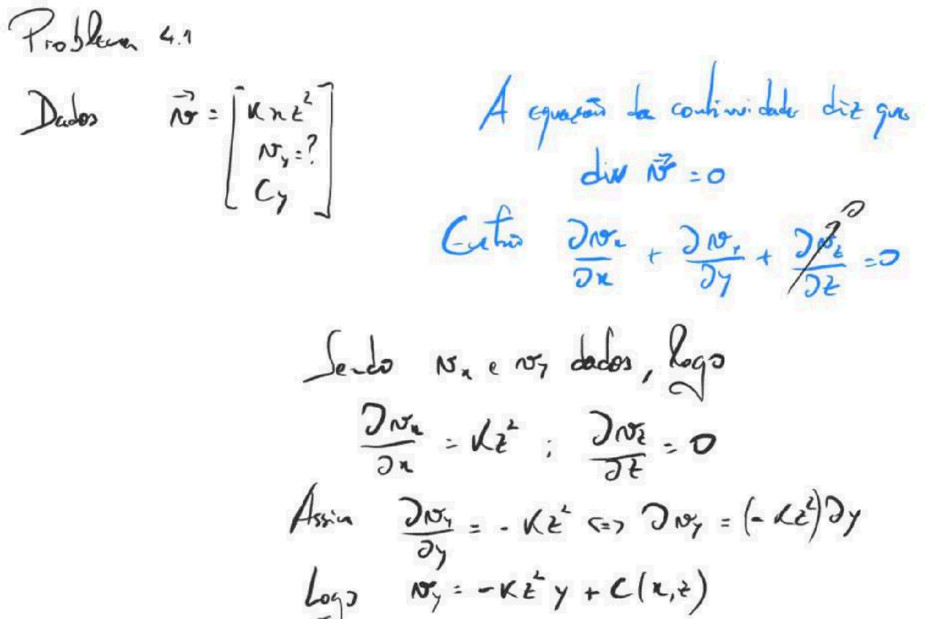 Problema 4.1
Dados v⃗ = [K x z² ; v_y = ? ; C y]
A equação da continuidade diz que
div v⃗ = 0
Então ∂v_x/∂x + ∂v_y/∂y + ∂v_z/∂z = 0
0
Sendo v_x e v_y dados, logo
∂v_x/∂x = Kz² ; ∂v_z/∂z = 0
Assim ∂v_y/∂y = - Kz² <=> ∂v_y = (-Kz²)∂y
Logo v_y = -Kz² y + C(x,z)